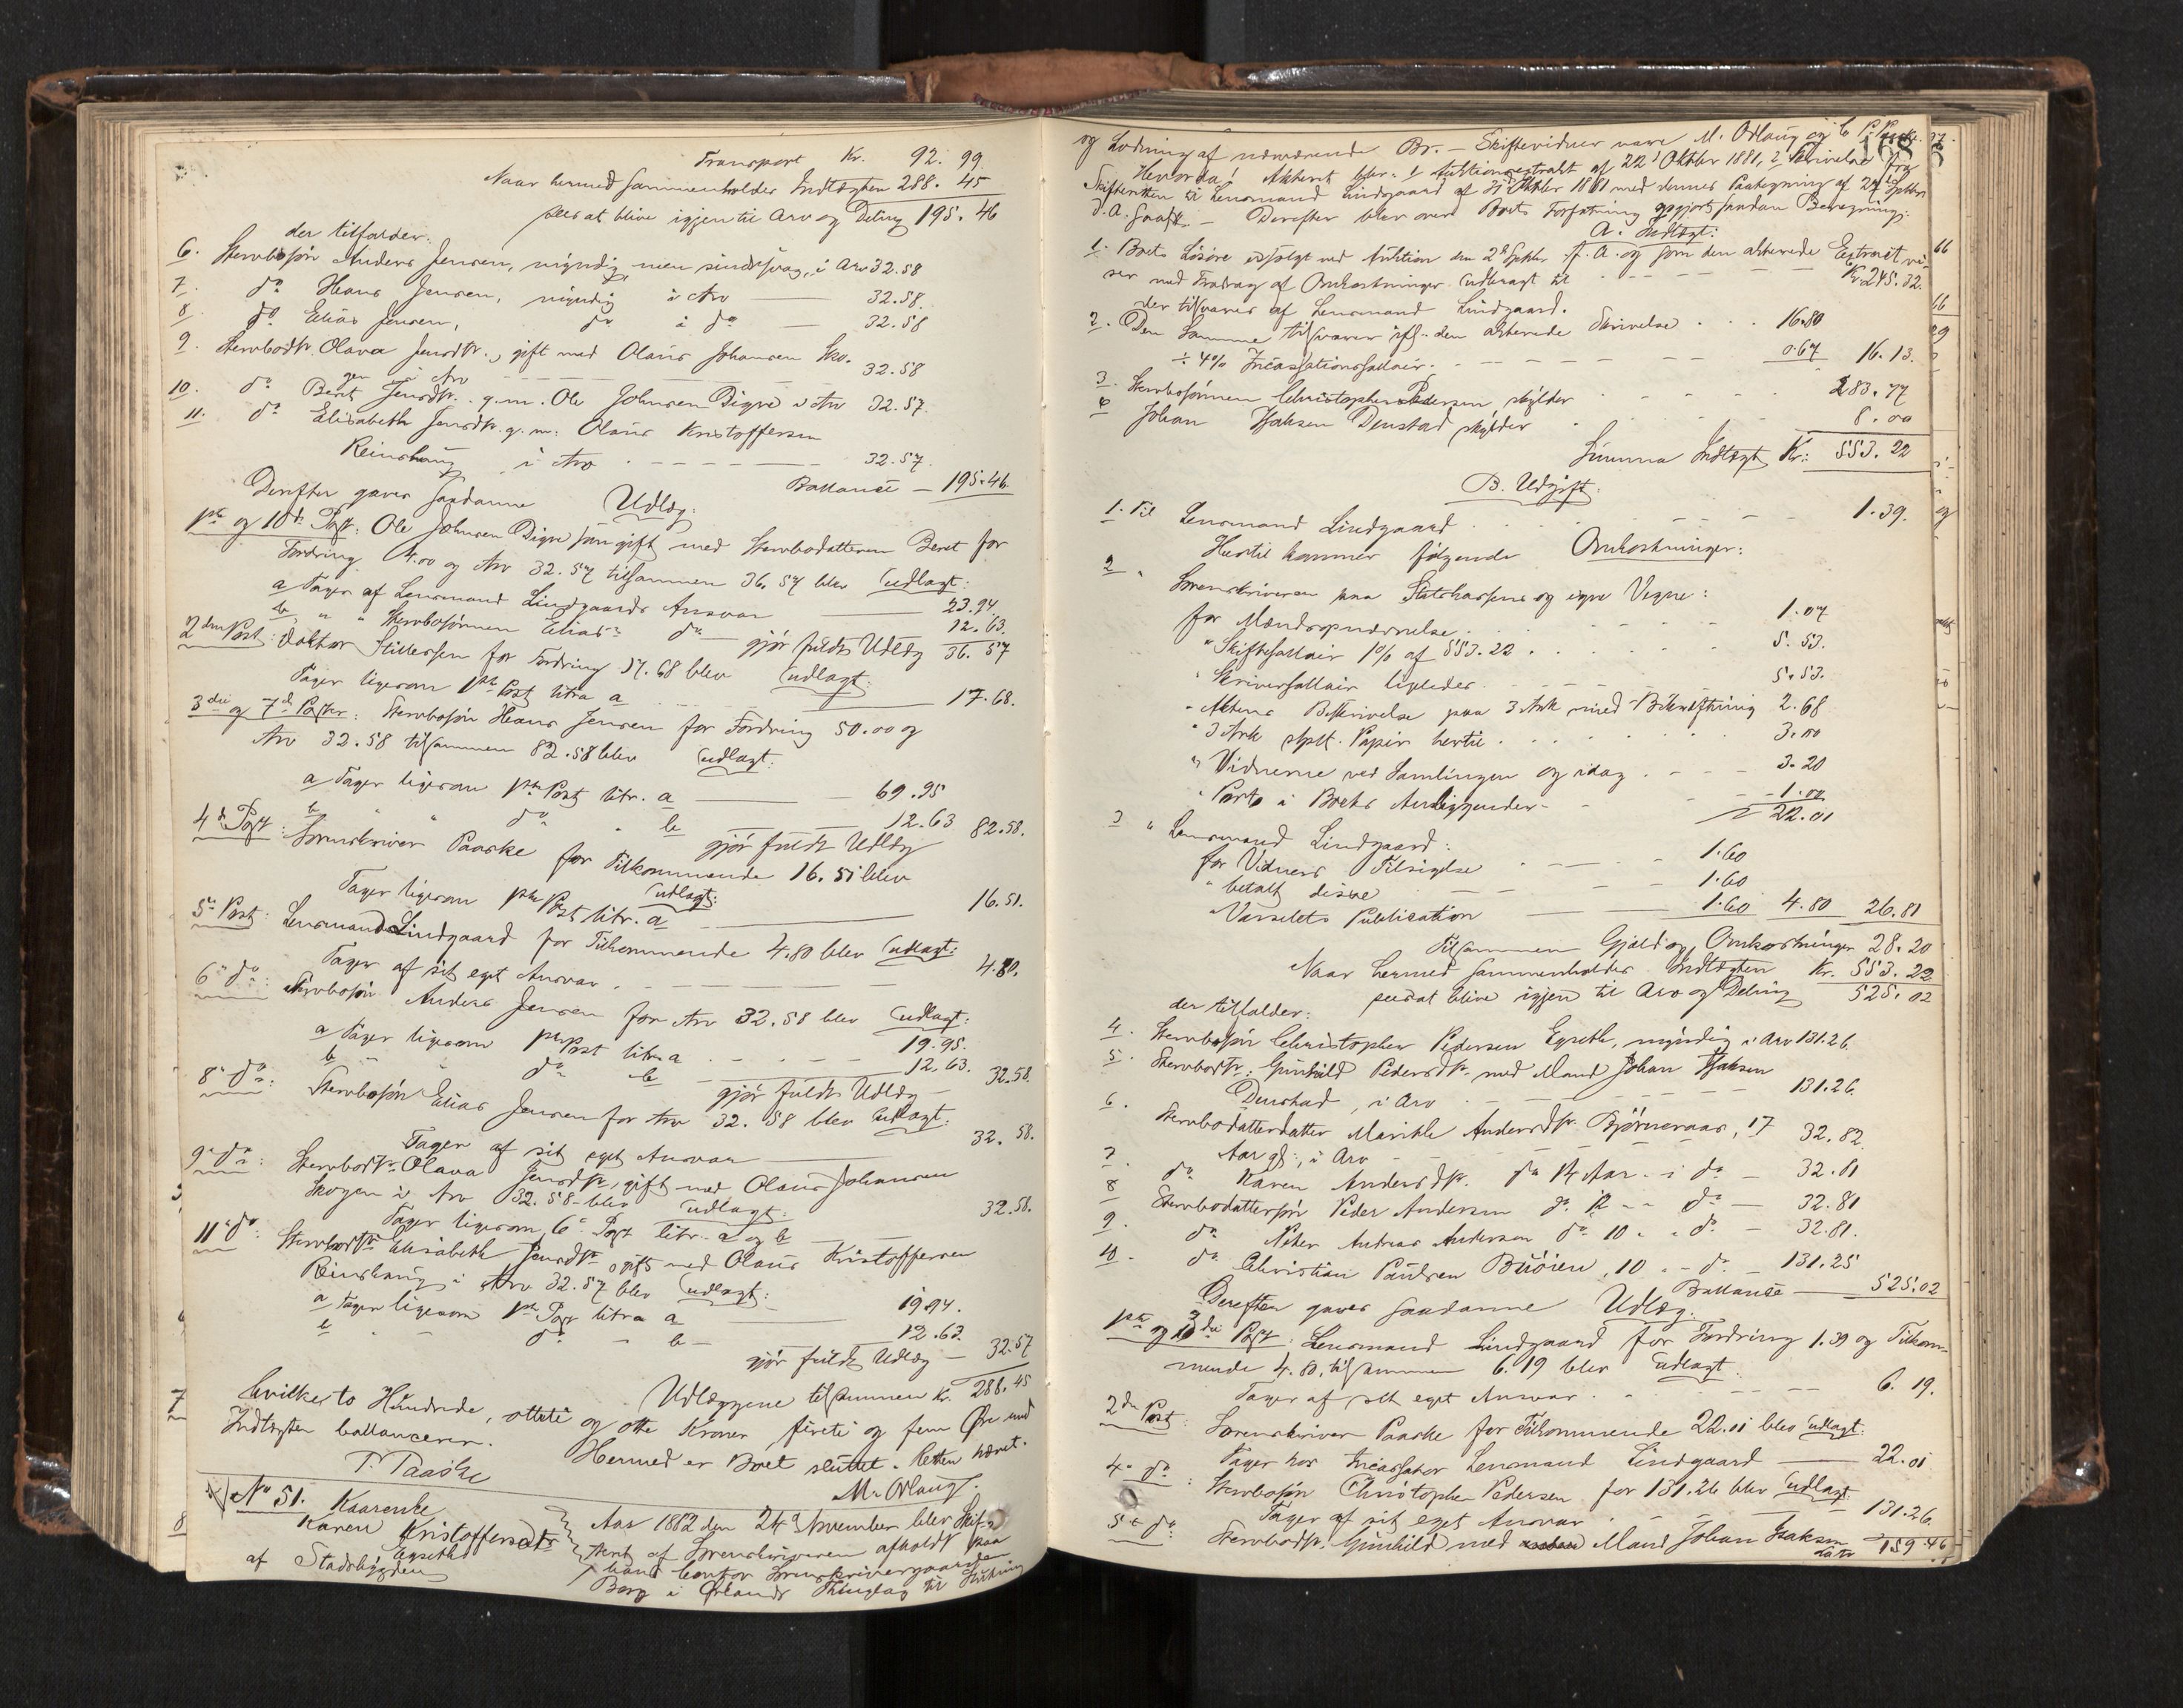 Transport Kr. 92.99
Naar hermed sammenholdes Indtægten 288.45
sees at blive igjen til Arv og Deling 195.46
der tilfalder:
6. Stervbosøn Anders Jensen, myndig men sindssvag, i Arv 32.58
7. do Hans Jensen, myndig i Arv — 32.58.
8. do Elias Jensen, do i do — 32.58
9. Stervbodtr. Olava Jensdtr., gift med Olaus Johansen Sko-
gen i Arv 32.58
10. do Berit Jensdtr. g. m. Ole Johnsen Digre i Arv 32.57.
11. do Elisabeth Jensdtr. g. m. Olaus Kristoffersen
Reinshaug i Arv 32.57.
Ballance — 195.46.
Derefter gaves saadanne Udlæg:
1ste og 10de Post: Ole Johnsen Digre som gift med Stervbodatteren Beret for
Fordring 4.00 og Arv 32.57 tilsammen 36.57 blev udlagt:
a Tages af Lensmand Lindgaards Ansvar — 23.94.
b " " Stervbosønnen Elias' do — 12.63.
gjør fuldt Udlæg 36.57
2den Post: Doktor Stillessen for Fordring 17.68 blev udlagt:
Tages ligesom 1ste Post litra a 17.68.
3die og 7de Poster: Stervbosøn Hans Jensen for Fordring 50.00 og
Arv 32.58 tilsammen 82.58 blev udlagt:
a Tages ligesom 1ste Post litr. a — 69.95
b " " do " b — 12.63
gjør fuldt Udlæg 82.58.
4de Post: Sorenskriver Paaske for Tilkommende 16.51 blev
udlagt:
Tages ligesom 1ste Post litr. a — 16.51.
5te Post: Lensmand Lindgaard for Tilkommende 4.80 blev udlagt:
Tages af sit eget Ansvar. 4.80.
6te do: Stervbosøn Anders Jensen for Arv 32.58 blev udlagt:
a Tages ligesom 1ste Post litra a 19.95.
b " do b 12.63.
gjør fuldt Udlæg — 32.58.
8de do: Stervbosøn Elias Jensen for Arv 32.58 blev udlagt:
Tages af sit eget Ansvar 32.58.
9de do: Stervbodtr. Olava Jensdtr., gift med Olaus Johansen
Skogen i Arv 32.58 blev udlagt:
Tages ligesom 6te Post litr. a og b — 32.58.
11te do: Stervbodtr. Elisabeth Jensdtr. gift med Olaus Kristoffersen
Reinshaug i Arv 32.57 blev udlagt:
a Tages ligesom 1ste Post litra a 19.94.
b " do " b — 12.63.
gjør fuldt Udlæg — 32.57
Udlæggene tilsammen Kr. 288.45
hvilke to Hundrede, otteti og otte Kroner, firti og fem Øre med
Indtægten ballancerer. Hermed er Boet sluttet. Retten hævet.
T. Paaske M. Orlaug.
No 51. Kaarenke
Karen Kristoffersdtr
Egreth
af Stadsbygden
Aar 1882 den 24de November blev Skif-
teret af Sorenskriveren afholdt paa
hans Contor Sorenskrivergaarden
Borg i Ørlands Thinglag til Slutning
178
og Lodning af nærværende Bo. — Skiftevidner vare M. Orlaug og C. P. Paaske.
Hvorda! Akteret blev: 1 Auktionsextrakt af 22de Oktober 1881, 2 Skrivelse fra
Skifteretten til Lensmand Lindgaard af Oktober 1881 med dennes Paategning af 27de Septbr
d. A. — Derefter blev over Boets Forfatning opgjort saadan Beregning:
A. Indtægt:
1. Boets Løsøre er solgt ved Auktion den 2de Septbr f. A. og som den akterede Extract vi-
ser med Fradrag af Omkostninger udbragt til Kr. 245.32.
der tilsvares af Lensmand Lindgaard.
2. Den Samme tilsvarer ifl. den akterede Skrivelse 16.80
÷ 4% Incassationssallair 0.67 16.13.
3. Stervbosønnen Christopher Pedersen skylder 283.77
Johan Isaksen Denstad skylder 8.00
Summa Indtægt Kr: 553.22
B. Udgift:
1. Til Lensmand Lindgaard 1.39.
Hertil kommer følgende Omkostninger:
2. Sorenskriveren paa Statskassens og egne Vegne:
for Mændsopnævnelse 1.07
" Skiftesallair 1% af 553.22 5.53.
" Skriversallair ligeledes 5.53.
" Aktens Beskrivelse paa 3 Ark med Bekræftning 2.68
" 3 Ark stplt. Papir hertil 3.00
" Vidnerne ved Samlingen og idag 3.20
" Porto i Boets Anliggender 1.00
22.01
3 " Lensmand Lindgaard:
for Vidners Tilsigelse 1.60
" betalt disse 1.60
Varselets Publication 1.60 4.80 26.81
Tilsammen Gjæld og Omkostninger 28.20
Naar hermed sammenholdes Indtægten Kr. 553.22
sees at blive igjen til Arv og Deling 525.02
der tilfalder:
4. Stervbosøn Christopher Pedersen Egreth, myndig i Arv 131.26.
5. Stervbodtr: Gunhild Pedersdtr. med Mand Johan Isaksen
Denstad, i Arv 131.26.
6. Stervbodatterdatter Marithe Andersdtr. Bjørneraas, 17
Aar gl., i Arv 32.82
7. do Karen Andersdtr. do 14 Aar - i do — 32.81
8 Stervbodattersøn Peder Andersen do 12 - - do — 32.81
9. do Peter Andreas Andersen do 10 - - do — 32.81.
10 - do Christian Paulsen Buøien, 10 - - do — 131.25
Ballance — 525.02
Derefter gaves saadanne Udlæg:
1ste og 3die Post: Lensmand Lindgaard for Fordring 1.39 og Tilkom-
mende 4.80, tilsammen 6.19 blev udlagt:
Tages af sit eget Ansvar 6.19.
2den Post: Sorenskriver Paaske for Tilkommende 22.01 blev udlagt:
Tages hos Incassator Lensmand Lindgaard — 22.01
4de do: Stervbosøn Christopher Pedersen for 131.26 blev udlagt:
Tages af sit eget Ansvar 131.26.
5te do: Stervbodtr. Gunhild med Mand Johan Isaksen
Latr 159.46